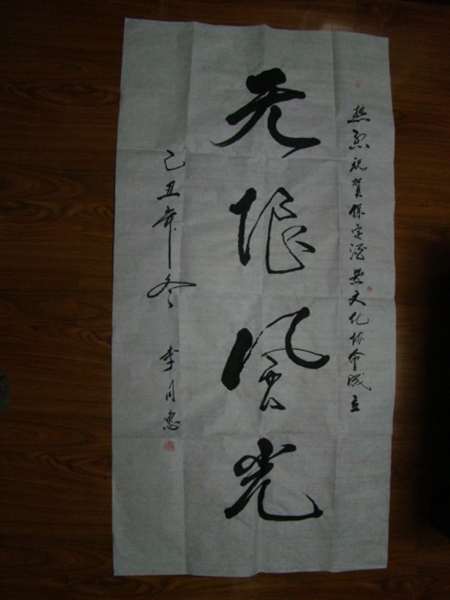 热烈祝贺保定酒器文化协会成立
无限风光
己丑年冬 李同忠